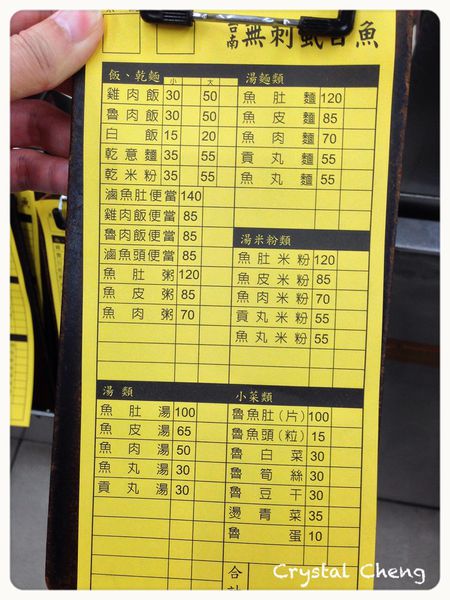 台南無刺虱目魚
飯、乾麵 小 大
雞肉飯 30 50
魯肉飯 30 50
白飯 15 20
乾意麵 35 55
乾米粉 35 55
滷魚肚便當 140
雞肉飯便當 85
魯肉飯便當 85
滷魚頭便當 85
魚肚粥 120
魚皮粥 85
魚肉粥 70
湯麵類
魚肚麵 120
魚皮麵 85
魚肉麵 70
貢丸麵 55
魚丸麵 55
湯米粉類
魚肚米粉 120
魚皮米粉 85
魚肉米粉 70
貢丸米粉 55
魚丸米粉 55
湯類
魚肚湯 100
魚皮湯 65
魚肉湯 50
魚丸湯 30
貢丸湯 30
小菜類
魯魚肚(片) 100
魯魚頭(粒) 15
魯白菜 30
魯筍絲 30
魯豆干 30
燙青菜 35
魯蛋 10
合
Crystal Cheng